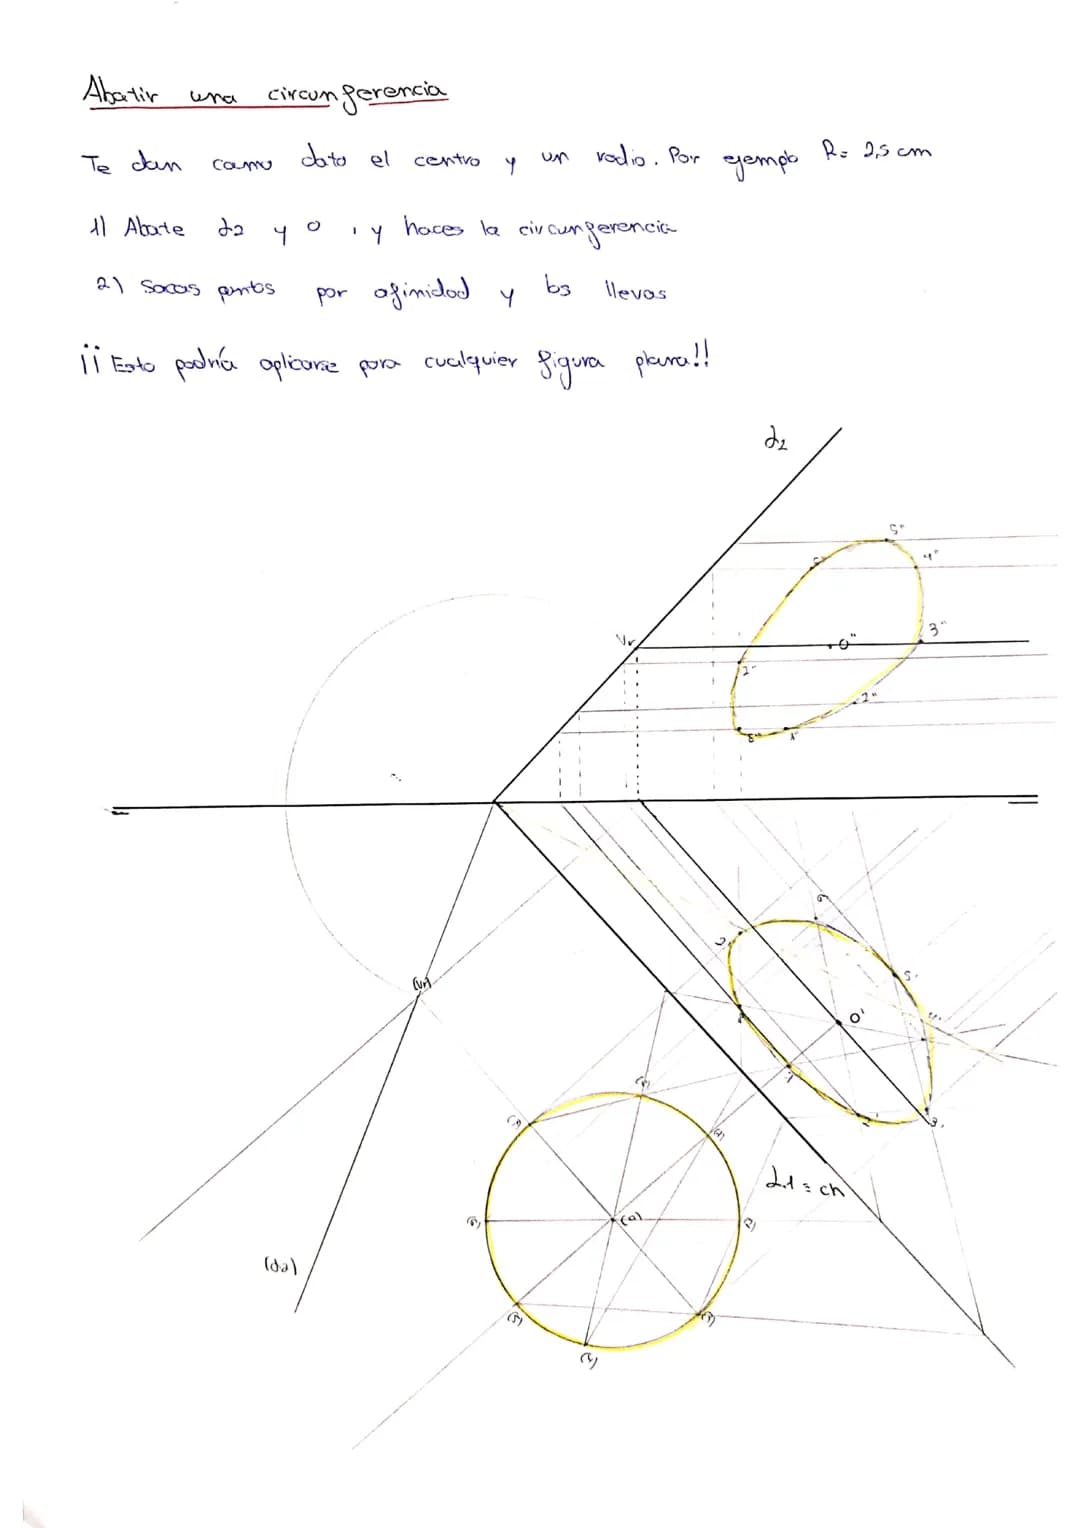 Abatir una circunferencia
Te dan como dato el centro y un radio. Por ejemplo R= 2,5 cm
1) Abate α2 y O, y haces la circunferencia
2) Sacas puntos por afinidad y los llevas
¡¡Esto podría aplicarse para cualquier figura plana!!
α2
5"
4"
Vr
3"
O"
2"
8"
1"
6'
2'
5'
(Vr)
O'
1'
3'
(1)
α1 ≡ ch
(O)
(2)
(α2)
(5)
(3)